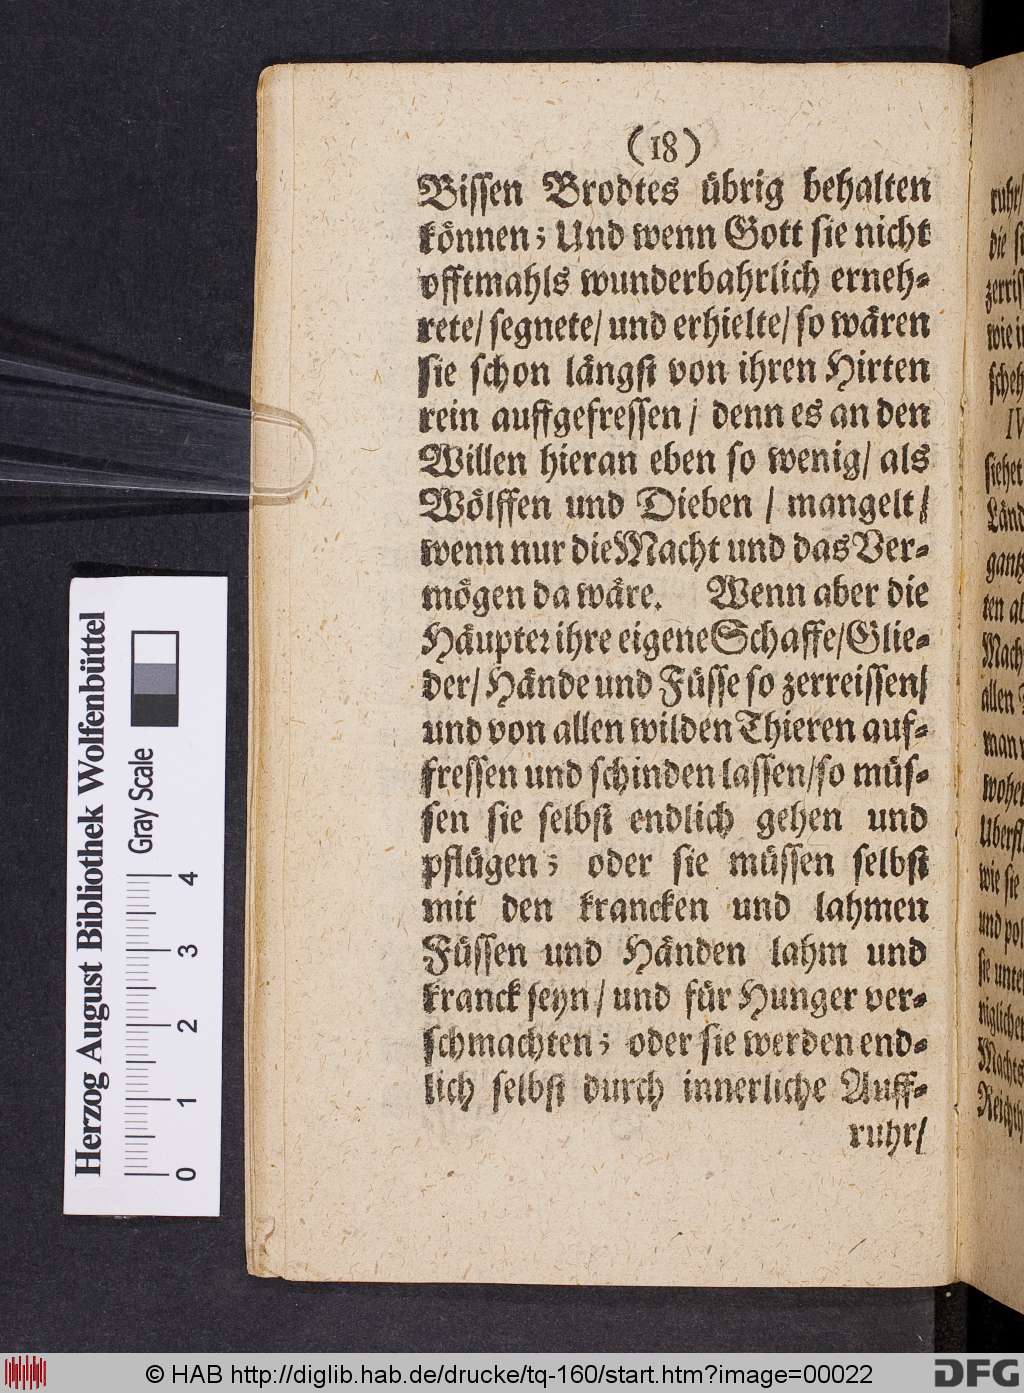 (18)
Bissen Brodtes übrig behalten
können; Und wenn Gott sie nicht
offtmahls wunderbahrlich erneh-
rete/ segnete/ und erhielte/ so wären
sie schon längst von ihren Hirten
rein auffgefressen/ denn es an den
Willen hieran eben so wenig/ als
Wölffen und Dieben / mangelt/
wenn nur die Macht und das Ver-
mögen da wäre. Wenn aber die
Häupter ihre eigene Schaffe/ Glie-
der/ Hände und Füsse so zerreissen/
und von allen wilden Thieren auf-
fressen und schinden lassen/ so müs-
sen sie selbst endlich gehen und
pflügen; oder sie müssen selbst
mit den krancken und lahmen
Füssen und Händen lahm und
kranck seyn/ und für Hunger ver-
schmachten; oder sie werden end-
lich selbst durch innerliche Auff-
ruhr/
ruhr/
die
zerris
wie
scheh
IV
siehet
Länd
gantz
ten
Mach
allen
man
wohe
Uberfl
wie sie
und pol
sie unte
riglicher
Machts
Reichth
Herzog August Bibliothek Wolfenbüttel
Gray Scale
0 1 2 3 4
© HAB http://diglib.hab.de/drucke/tq-160/start.htm?image=00022
DFG